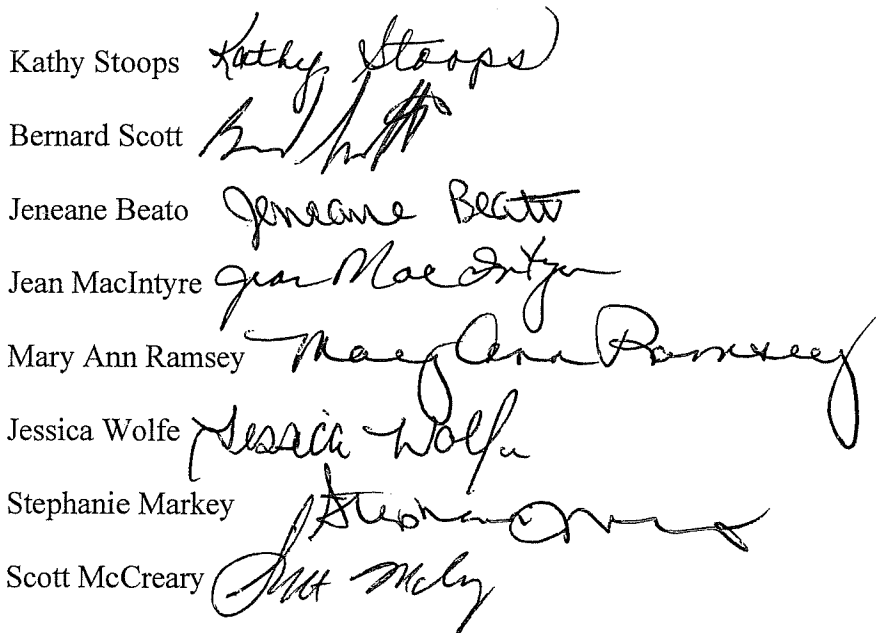 Kathy Stoops Kathy Stoops
Bernard Scott
Jeneane Beato Jeneane Beato
Jean MacIntyre Jean MacIntyre
Mary Ann Ramsey Mary Ann Ramsey
Jessica Wolfe Jessica Wolfe
Stephanie Markey
Scott McCreary